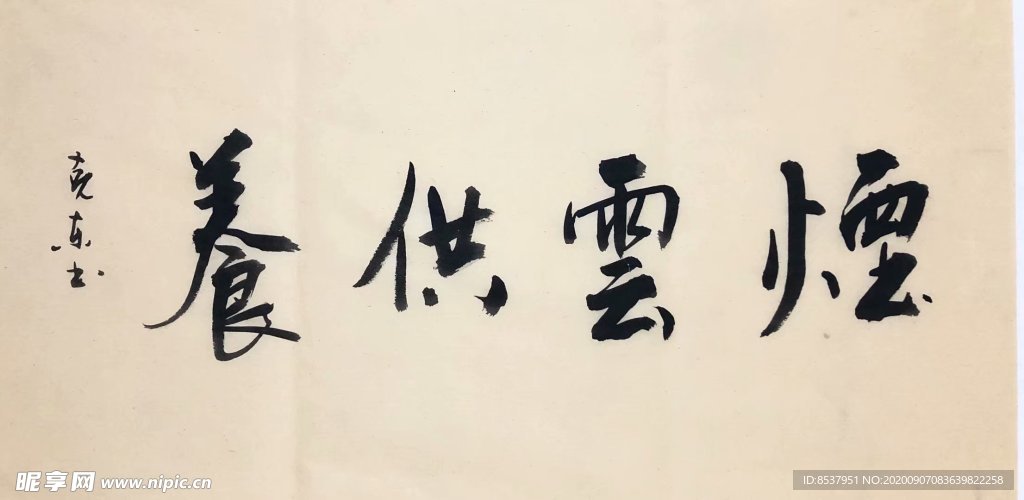 煙雲供養
克东书
昵享网 www.nipic.cn
ID:8537951 NO:20200907083639822258